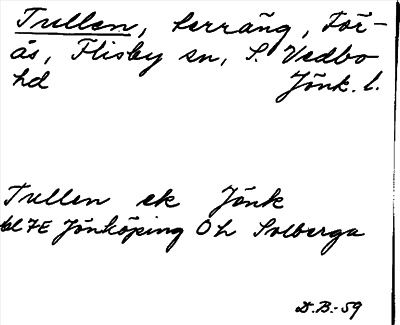 Tullen, terräng, För-
ås, Flisby sn, S. Vedbo
hd Jönk. l.
Tullen ek Jönk
bl 7E Jönköping Oh Solberga
D.B.-59